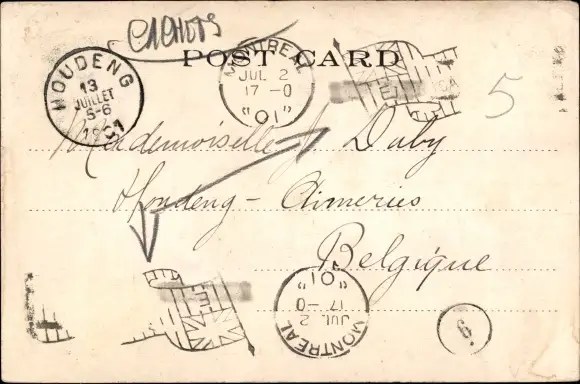 CACHETS
POST CARD
HOUDENG
13
JUILLET
5-6
1901
MONTREAL
JUL 2
17-0
"01"
5
Mademoiselle J. Daby
Houdeng - Aimeries
Belgique
MONTREAL
JUL 2
17-0
"01"
6